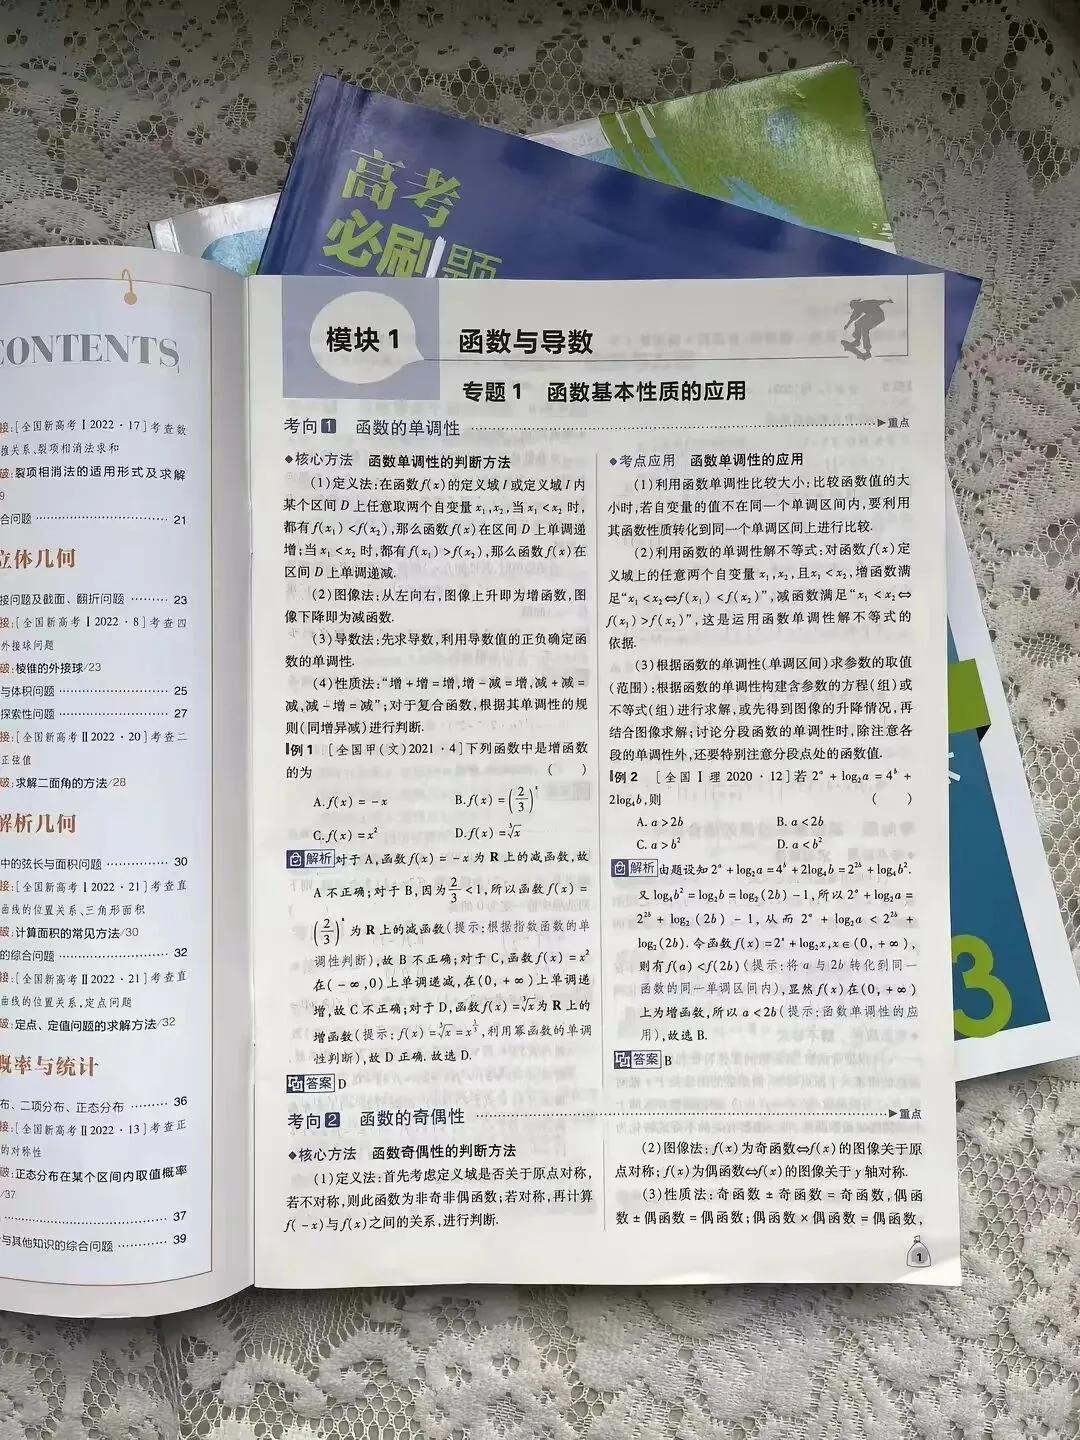 高考
必刷题
CONTENTS
接:[全国新高考Ⅰ2022·17]考查数
推关系、裂项相消法求和
破:裂项相消法的适用形式及求解
9
合问题 ············ 21
立体几何
接问题及截面、翻折问题 ······ 23
接:[全国新高考Ⅰ2022·8]考查四
外接球问题
破:棱锥的外接球/23
与体积问题 ············ 25
探索性问题 ············ 27
接:[全国新高考Ⅱ2022·20]考查二
正弦值
破:求解二面角的方法/28
解析几何
中的弦长与面积问题 ········ 30
接:[全国新高考Ⅰ2022·21]考查直
曲线的位置关系、三角形面积
破:计算面积的常见方法/30
的综合问题 ············ 32
接:[全国新高考Ⅱ2022·21]考查直
曲线的位置关系,定点问题
破:定点、定值问题的求解方法/32
概率与统计
布、二项分布、正态分布 ······ 36
接:[全国新高考Ⅱ2022·13]考查正
的对称性
破:正态分布在某个区间内取值概率
/37
············ 37
与其他知识的综合问题 ········ 39
模块1 函数与导数
专题1 函数基本性质的应用
考向1 函数的单调性 ············ 重点
◆核心方法 函数单调性的判断方法
(1)定义法:在函数f(x)的定义域I或定义域I内
某个区间D上任意取两个自变量x₁,x₂,当x₁<x₂时,
都有f(x₁)<f(x₂),那么函数f(x)在区间D上单调递
增;当x₁<x₂时,都有f(x₁)>f(x₂),那么函数f(x)在
区间D上单调递减.
(2)图像法:从左向右,图像上升即为增函数,图
像下降即为减函数.
(3)导数法:先求导数,利用导数值的正负确定函
数的单调性.
(4)性质法:“增+增=增,增-减=增,减+减=
减,减-增=减”;对于复合函数,根据其单调性的规
则(同增异减)进行判断.
例1 [全国甲(文)2021·4]下列函数中是增函数
的为 ( )
A.f(x)=-x B.f(x)=(2/3)ˣ
C.f(x)=x² D.f(x)=∛x
解析 对于A,函数f(x)=-x为R上的减函数,故
A不正确;对于B,因为2/3<1,所以函数f(x)=
(2/3)ˣ为R上的减函数(提示:根据指数函数的单
调性判断),故B不正确;对于C,函数f(x)=x²
在(-∞,0)上单调递减,在(0,+∞)上单调递
增,故C不正确;对于D,函数f(x)=∛x为R上的
增函数(提示:f(x)=∛x=x^(1/3),利用幂函数的单调
性判断),故D正确.故选D.
答案 D
◆考点应用 函数单调性的应用
(1)利用函数单调性比较大小:比较函数值的大
小时,若自变量的值不在同一个单调区间内,要利用
其函数性质转化到同一个单调区间上进行比较.
(2)利用函数的单调性解不等式:对函数f(x)定
义域上的任意两个自变量x₁,x₂,且x₁<x₂,增函数满
足“x₁<x₂⇔f(x₁)<f(x₂)”,减函数满足“x₁<x₂⇔
f(x₁)>f(x₂)”,这是运用函数单调性解不等式的
依据.
(3)根据函数的单调性(单调区间)求参数的取值
(范围):根据函数的单调性构建含参数的方程(组)或
不等式(组)进行求解,或先得到图像的升降情况,再
结合图像求解;讨论分段函数的单调性时,除注意各
段的单调性外,还要特别注意分段点处的函数值.
例2 [全国Ⅰ理2020·12]若2ᵃ+log₂a=4ᵇ+
2log₄b,则 ( )
A.a>2b B.a<2b
C.a>b² D.a<b²
解析 由题设知2ᵃ+log₂a=4ᵇ+2log₄b=2²ᵇ+log₄b².
又log₄b²=log₂b=log₂(2b)-1,所以2ᵃ+log₂a=
2²ᵇ+log₂(2b)-1,从而2ᵃ+log₂a<2²ᵇ+
log₂(2b).令函数f(x)=2ˣ+log₂x,x∈(0,+∞),
则有f(a)<f(2b)(提示:将a与2b转化到同一
函数的同一单调区间内),显然f(x)在(0,+∞)
上为增函数,所以a<2b(提示:函数单调性的应
用),故选B.
答案 B
考向2 函数的奇偶性 ············ 重点
◆核心方法 函数奇偶性的判断方法
(1)定义法:首先考虑定义域是否关于原点对称,
若不对称,则此函数为非奇非偶函数;若对称,再计算
f(-x)与f(x)之间的关系,进行判断.
(2)图像法:f(x)为奇函数⇔f(x)的图像关于原
点对称;f(x)为偶函数⇔f(x)的图像关于y轴对称.
(3)性质法:奇函数±奇函数=奇函数,偶函
数±偶函数=偶函数;偶函数×偶函数=偶函数,
1
3